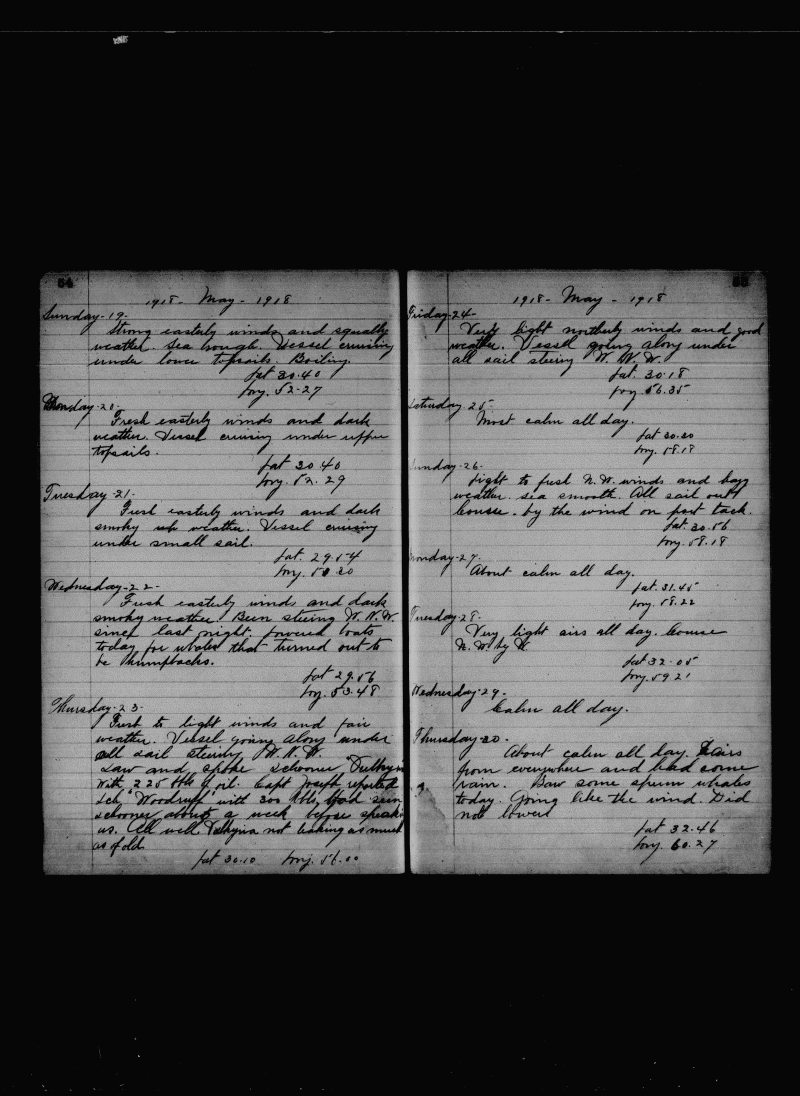 54
1918 - May - 1918
Sunday-19-
Strong easterly winds and squally
weather. Sea rough. Vessel cruising
under lower topsails. Boiling.
Lat 30.40
Long. 52-27
Monday-20-
Fresh easterly winds and dark
weather. Vessel cruising under upper
topsails.
Lat 30.40
Long. 52.29
Tuesday-21-
Fresh easterly winds and dark
smoky weather. Vessel cruising
under small sail.
Lat. 29.54
Long. 50 30
Wednesday-22-
Fresh easterly winds and dark
smoky weather Been steering W.N.W.
since last night. Lowered boats
today for whales that turned out to
be humpbacks.
Lat 29.56
Long. 53.48
Thursday-23-
Fresh to light winds and fair
weather. Vessel going along under
all sail steering W.N.W.
Saw and spoke schooner
With 225 bbls of oil. Capt Joseph reported
Sch. Woodruff with 300 bbls, had seen
schooner about a week before speaking
us. All well not leaking as much
as of old.
Lat 30.10 Long. 56.00
55
1918 - May - 1918
Friday-24-
Very light northerly winds and good
weather. Vessel going along under
all sail steering W.N.W.
Lat. 30.18
Long. 56.35
Saturday-25-
Most calm all day.
Lat 30.30
Long. 58.18
Sunday-26-
Light to fresh N.W. winds and hazy
weather. Sea smooth. All sail out
Course. by the wind on port tack.
Lat 30.56
Long. 58.18
Monday-27-
About calm all day.
Lat. 31.45
Long. 58.22
Tuesday-28-
Very light airs all day. Course
N.W. by W.
Lat 32.05
Long. 59 21
Wednesday-29-
Calm all day.
Thursday-30-
About calm all day. Airs
from everywhere and had some
rain. Saw some sperm whales
today. Going like the wind. Did
not lower
Lat 32.46
Long. 60.27